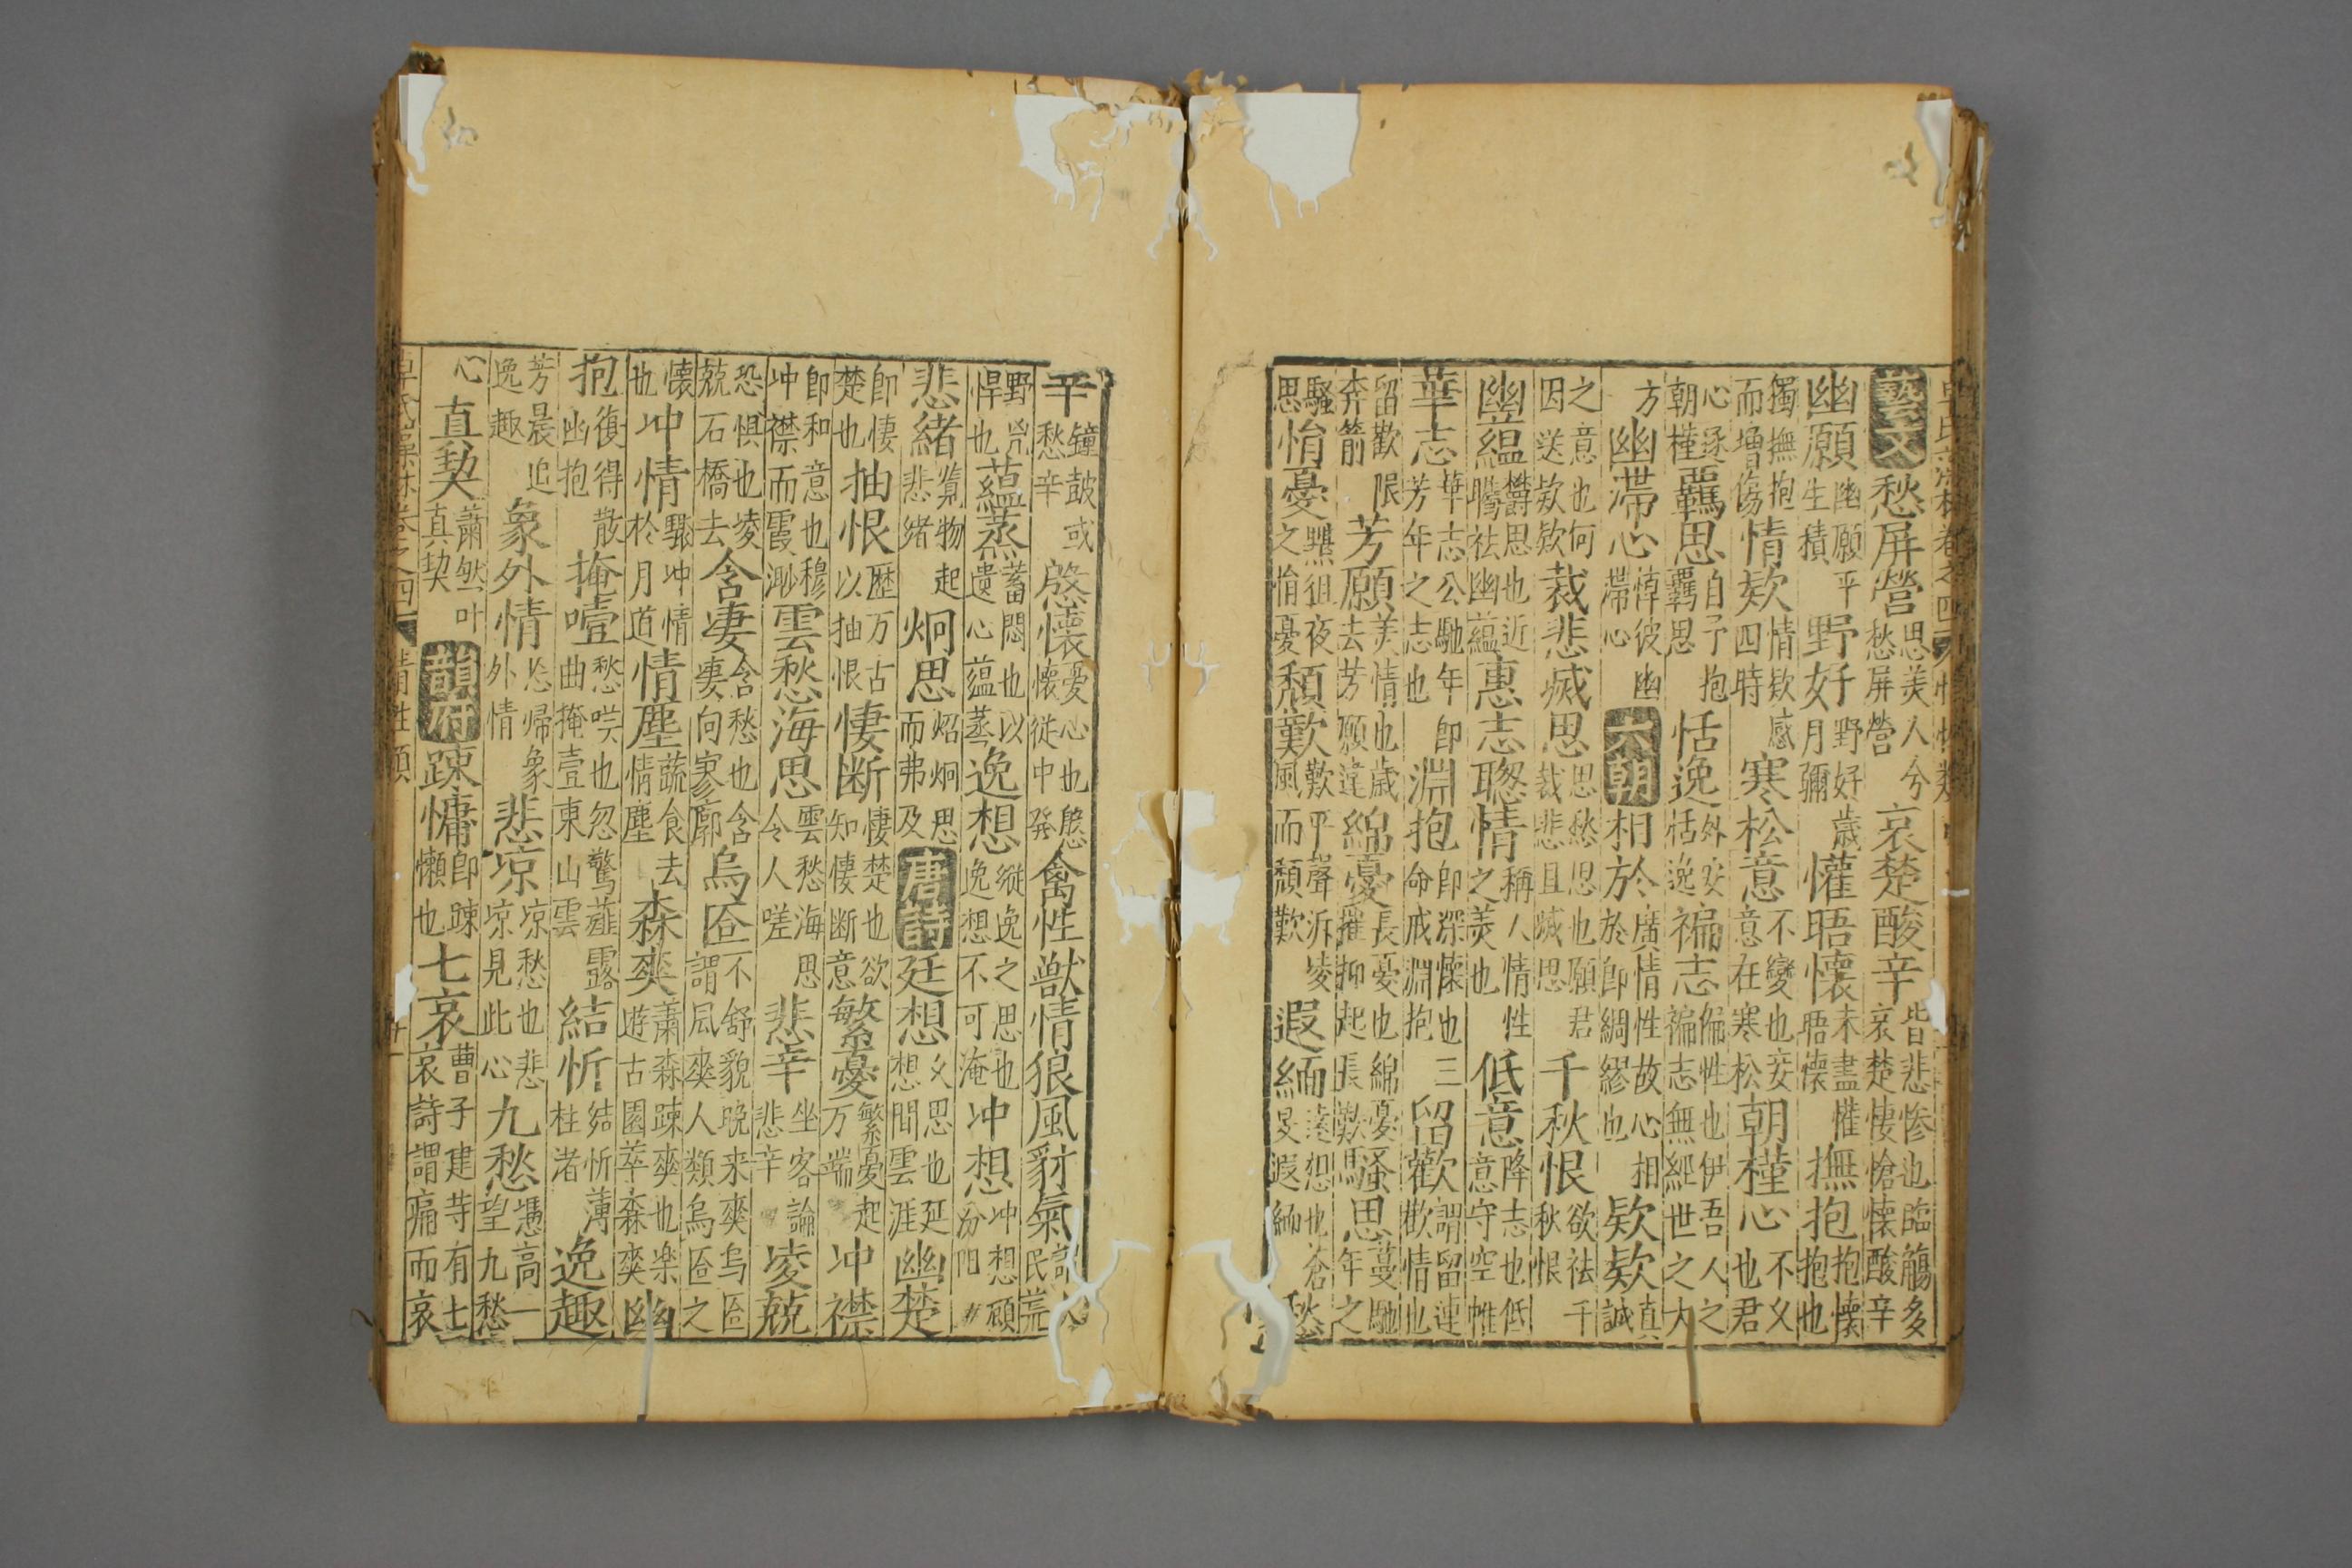 藝文愁屏營思美人兮愁屏營哀楚酸辛皆悲慘也臨觴多哀楚悽愴懷酸辛
幽願幽願平生積野好野好歲月彌懽晤懷未盡懽晤懷撫抱抱懷抱也
獨撫抱而增傷情欵情欵感四時寒松意不變也妄意在寒松朝槿心不久也君
心逐朝槿羈思自予抱羈思恬逸外安恬逸褊志偏性也伊吾人之褊志無經世之大
方幽滯心悼彼幽滯心六朝相於今廣情性故心相於即綢繆也欵欵真誠
之意也何因送欵欵裁悲滅思思愁思也願君裁悲且滅思千秋恨欲祛千秋恨
幽蘊欝思也近矚祛幽蘊惠志聦情稱人情性之美也低意降志也低意守空帷
華志華志公馳年芳年之志也即淵抱即深懷也三命戒淵抱留歡謂留連歡情也
留歡限奔箭芳願美情也歲去芳願違綿憂長憂也綿憂摧抑起長歎騷思蔓馳年之
騷思悁憂黑徂夜之悁憂頹歎歎乎聲泝凌風而頹歎遐緬遠怨也蒼旻遐緬愁
辛鐘鼓或愁辛慇懷憂心也慇懷從中發禽性獸情狼風豺氣民荒
野咒悍也蘊蒸蓄悶也以遺心蘊蒸逸想縱逸之思也逸想不可淹冲想冲想顧汾陽
悲緒覧物起悲緒炯思炤炯思而弗及唐詩延想久思也延想間雲涯幽楚
即悽楚也抽恨歷万古以抽恨悽断悽楚也欲知悽断意繁憂繁憂起万端冲襟
即和意也穆冲襟而霞渺雲愁海思雲愁海思令人嗟悲辛坐客論悲辛凌兢
恐惧也凌兢石橋去含凄含愁也含凄向寥廓烏匼不舒貌晚来爽烏匼謂風爽人類烏匼之
懷也冲情驟冲情於月道情塵蔬食去情塵森爽蕭森踈爽也樂遊古園萃森爽幽
抱復得散幽抱掩噎愁哭也忽驚薤露曲掩壹東山雲結忻結忻薄柱渚逸趣
芳晨追逸趣象外情恣歸象外情悲凉凉愁也悲凉見此心九愁憑高一望九愁
心直契蕭然叶真契韻府踈慵即踈懶也七哀曹子建寺有七哀詩謂痛而哀